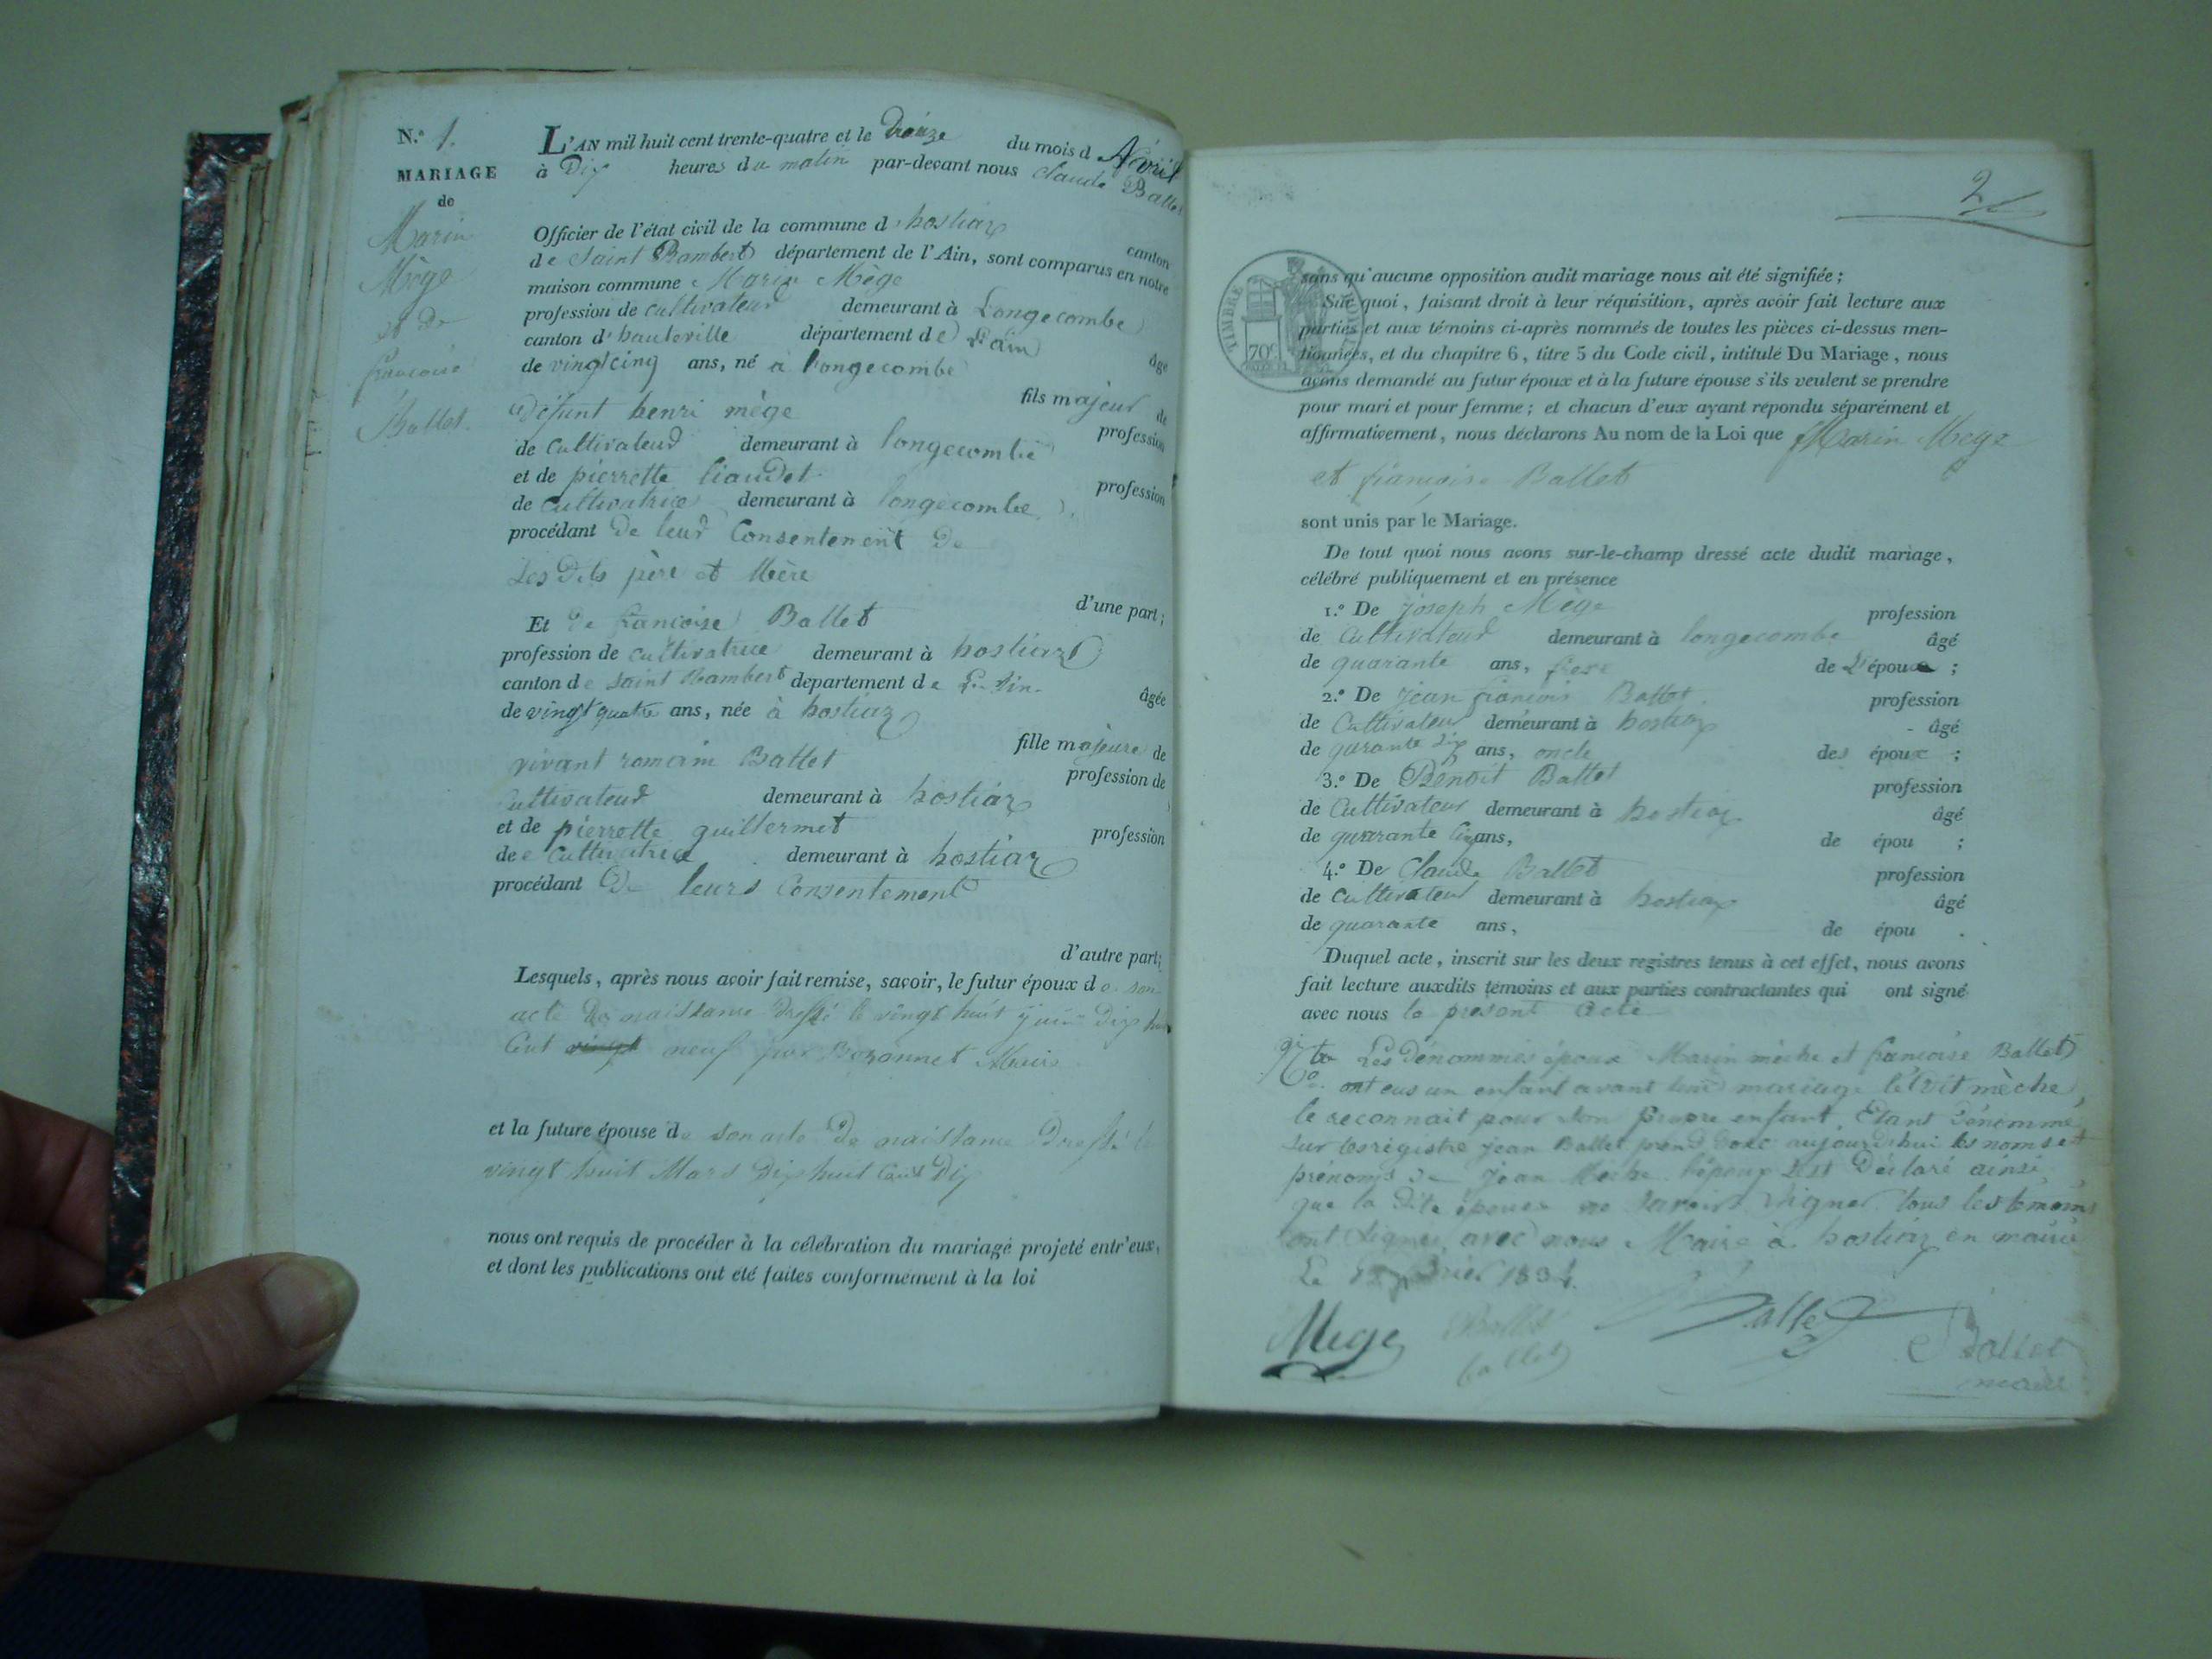 N.º 1.
MARIAGE
de
Marin
Mège
et de
françoise
Ballet.
L'AN mil huit cent trente-quatre et le du mois d'Avril
à Dix heures du matin par-devant nous Claude Ballet
Officier de l'état civil de la commune d'hostiaz canton
de Saint Rambert département de l'Ain, sont comparus en notre
maison commune Marin Mège
profession de cultivateur demeurant à Longecombe
canton d'hauteville département de L'ain âgé
de vingt cinq ans, né à longecombe
fils majeur de
défunt henri mège profession
de Cultivateur demeurant à longecombe
et de pierrette liaudet profession
de Cultivatrice demeurant à longecombe
procédant de leur Consentement de
Les Dits père et Mère
d'une part;
Et de françoise Ballet
profession de cultivatrice demeurant à hostiaz
canton de Saint Rambert département de L'Ain âgée
de vingt quatre ans, née à hostiaz
fille majeure de
vivant romain Ballet profession de
Cultivateur demeurant à hostiaz
et de pierrette guillermet profession
de Cultivatrice demeurant à hostiaz
procédant De leurs Consentement
d'autre part;
Lesquels, après nous avoir fait remise, savoir, le futur époux de son
acte de naissance Dressé le vingt huit juin Dix huit
Cent neuf par Bozonnet Maire
et la future épouse de son acte De naissance Dressé le
vingt huit Mars Dix huit Cent Dix
nous ont requis de procéder à la célébration du mariage projeté entr'eux,
et dont les publications ont été faites conformément à la loi
2
TIMBRE ROYAL
70c
sans qu'aucune opposition audit mariage nous ait été signifiée;
Sur quoi, faisant droit à leur réquisition, après avoir fait lecture aux
parties et aux témoins ci-après nommés de toutes les pièces ci-dessus men-
tionnées, et du chapitre 6, titre 5 du Code civil, intitulé Du Mariage, nous
avons demandé au futur époux et à la future épouse s'ils veulent se prendre
pour mari et pour femme; et chacun d'eux ayant répondu séparément et
affirmativement, nous déclarons Au nom de la Loi que Marin Mège
et françoise Ballet
sont unis par le Mariage.
De tout quoi nous avons sur-le-champ dressé acte dudit mariage,
célébré publiquement et en présence
1.º De joseph Mège profession
de Cultivateur demeurant à longecombe âgé
de quarante ans, frere de L'époux;
2.º De jean françois Ballet profession
de Cultivateur demeurant à hostiaz âgé
de quarante six ans, oncle des époux;
3.º De Benoit Ballet profession
de Cultivateur demeurant à hostiaz âgé
de quarante Cinq ans, de épou ;
4.º De Claude Ballet profession
de Cultivateur demeurant à hostiaz âgé
de quarante ans, de épou .
Duquel acte, inscrit sur les deux registres tenus à cet effet, nous avons
fait lecture auxdits témoins et aux parties contractantes qui ont signé
avec nous le present Acte
Les Dénommés époux Marin mèche et françoise Ballet
ont eus un enfant avant leur mariage le dit mèche
le reconnait pour son propre enfant. Etant Dénommé
sur les registre jean Ballet prend donc aujourdhui les noms et
prénoms de jean Mèche l'époux Déclaré ainsi
que la Dite épouse ne savoir signer tous les temoins
ont signer avec nous Maire à hostiaz en mairie
Le 1834.
Mege Ballet Ballet
Ballet C Ballet
maire